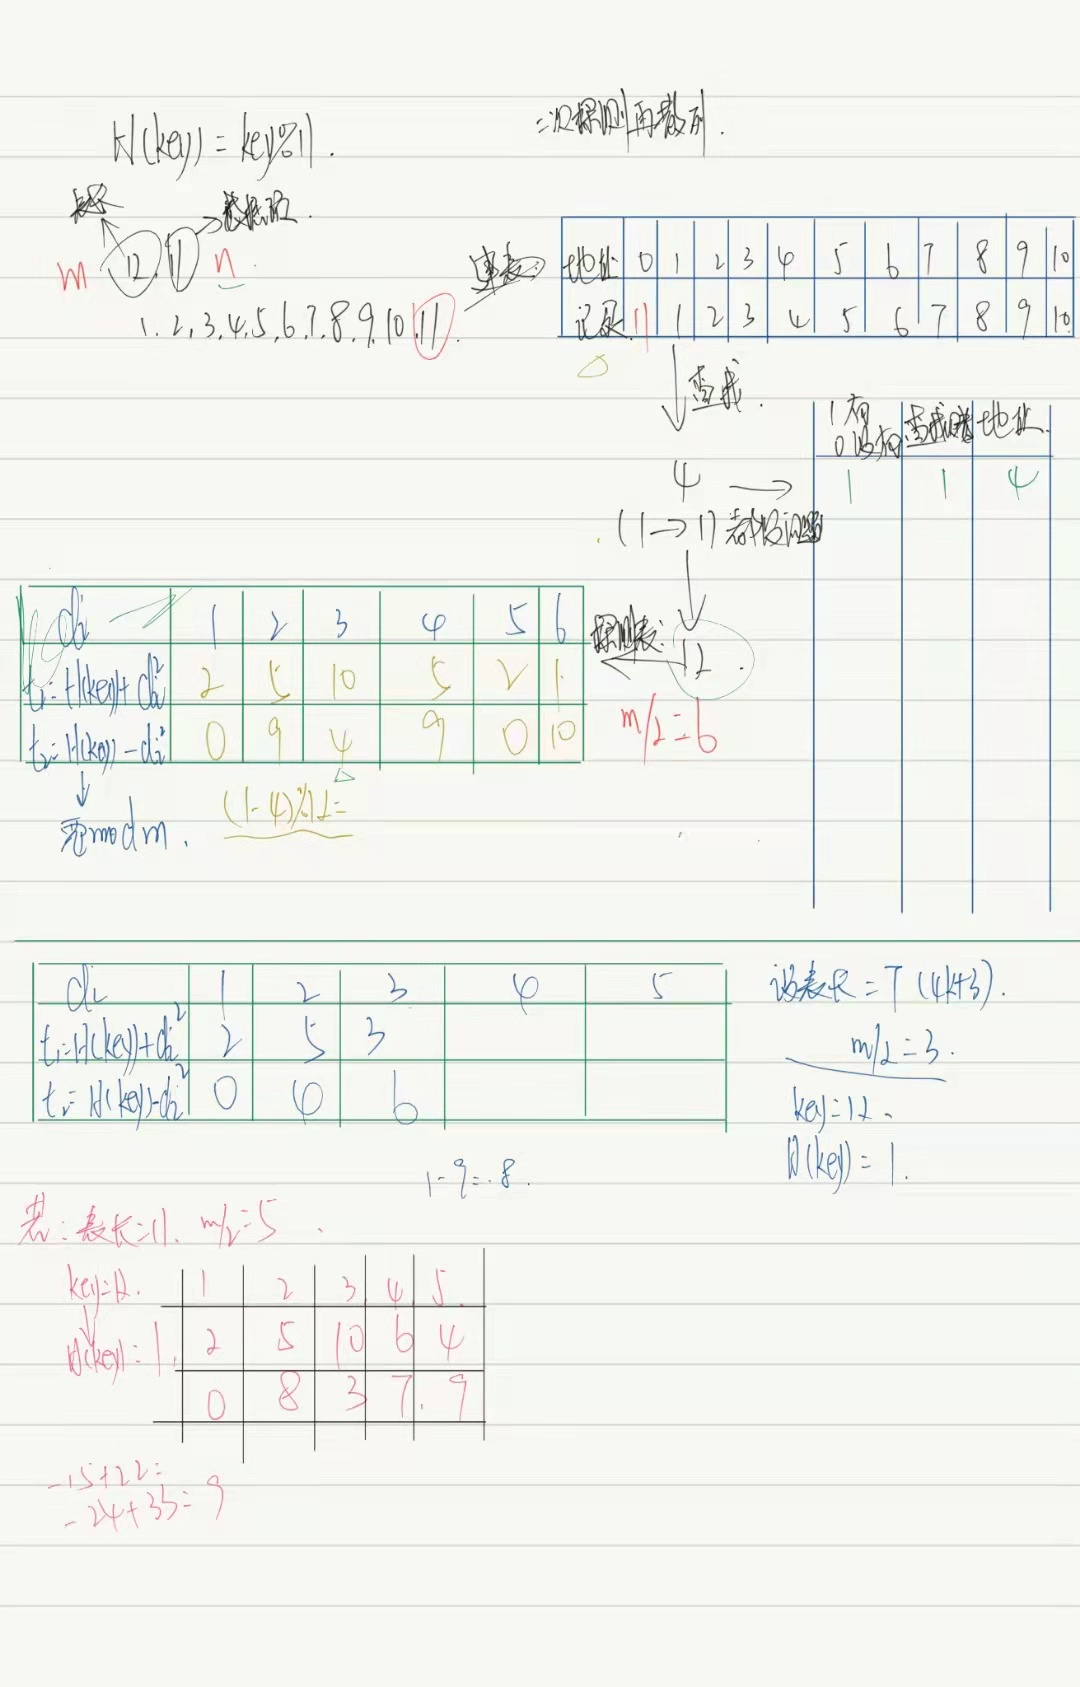 H(key) = key%11.
二次探测再散列.
表长
数据
m 12, 11 n
1. 2, 3, 4, 5, 6, 7, 8, 9, 10, 11.
建表:
地址 0 1 2 3 4 5 6 7 8 9 10
记录 11 1 2 3 4 5 6 7 8 9 10
查找.
1有 0没有 查找 地址
4 → 1 1 4
(1→11)都没问题
探测表:
12.
m/2=6
di 1 2 3 4 5 6
t1=H(key)+di² 2 5 10 5 2 1
t2=H(key)-di² 0 9 4 9 0 10
mod m.
(1-4)%12=
di 1 2 3 4 5
t1=H(key)+di² 2 5 3
t2=H(key)-di² 0 4 6
设表长=7(4k+3).
m/2=3.
key=12.
H(key)=1.
1-9=-8.
若:表长=11. m/2=5
key=12. 1 2 3 4 5
H(key)=1. 2 5 10 6 4
0 8 3 7. 9
-15+22=
-24+33=9